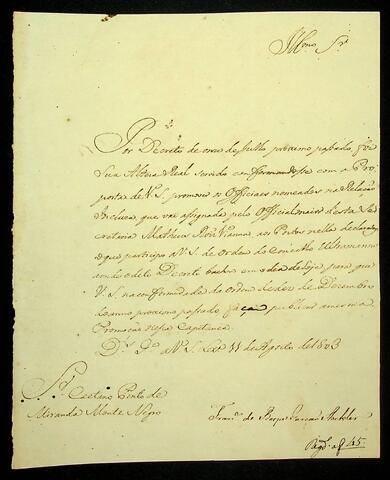 Illmo Sr.
Por Decreto de onze de Julho proximo passado, foi
Sua Alteza Real servido conformandosse com a Pro
posta de V. S. promover os Officiaes nomeados na Relação
Incluza, que vai assignada pelo Official maior desta Se
cretaria Matheus Roiz Vianna, aos Postos nella declarados,
o que participo a V. S. de Ordem do Conselho Ultramarino
onde o dito Decreto baixou em para que
V. S. na conformidade da ordem de de Dezembro
do anno proximo passado faça publicar a mesma
Promoção nessa Capitania.
Ds. Ge. a V. S. Lxa. 11 de Agosto de 1803
Sr. Caetano Pinto de
Miranda Monte Negro
Franco. de Borja Garção Stockler
Regda. a f 45.